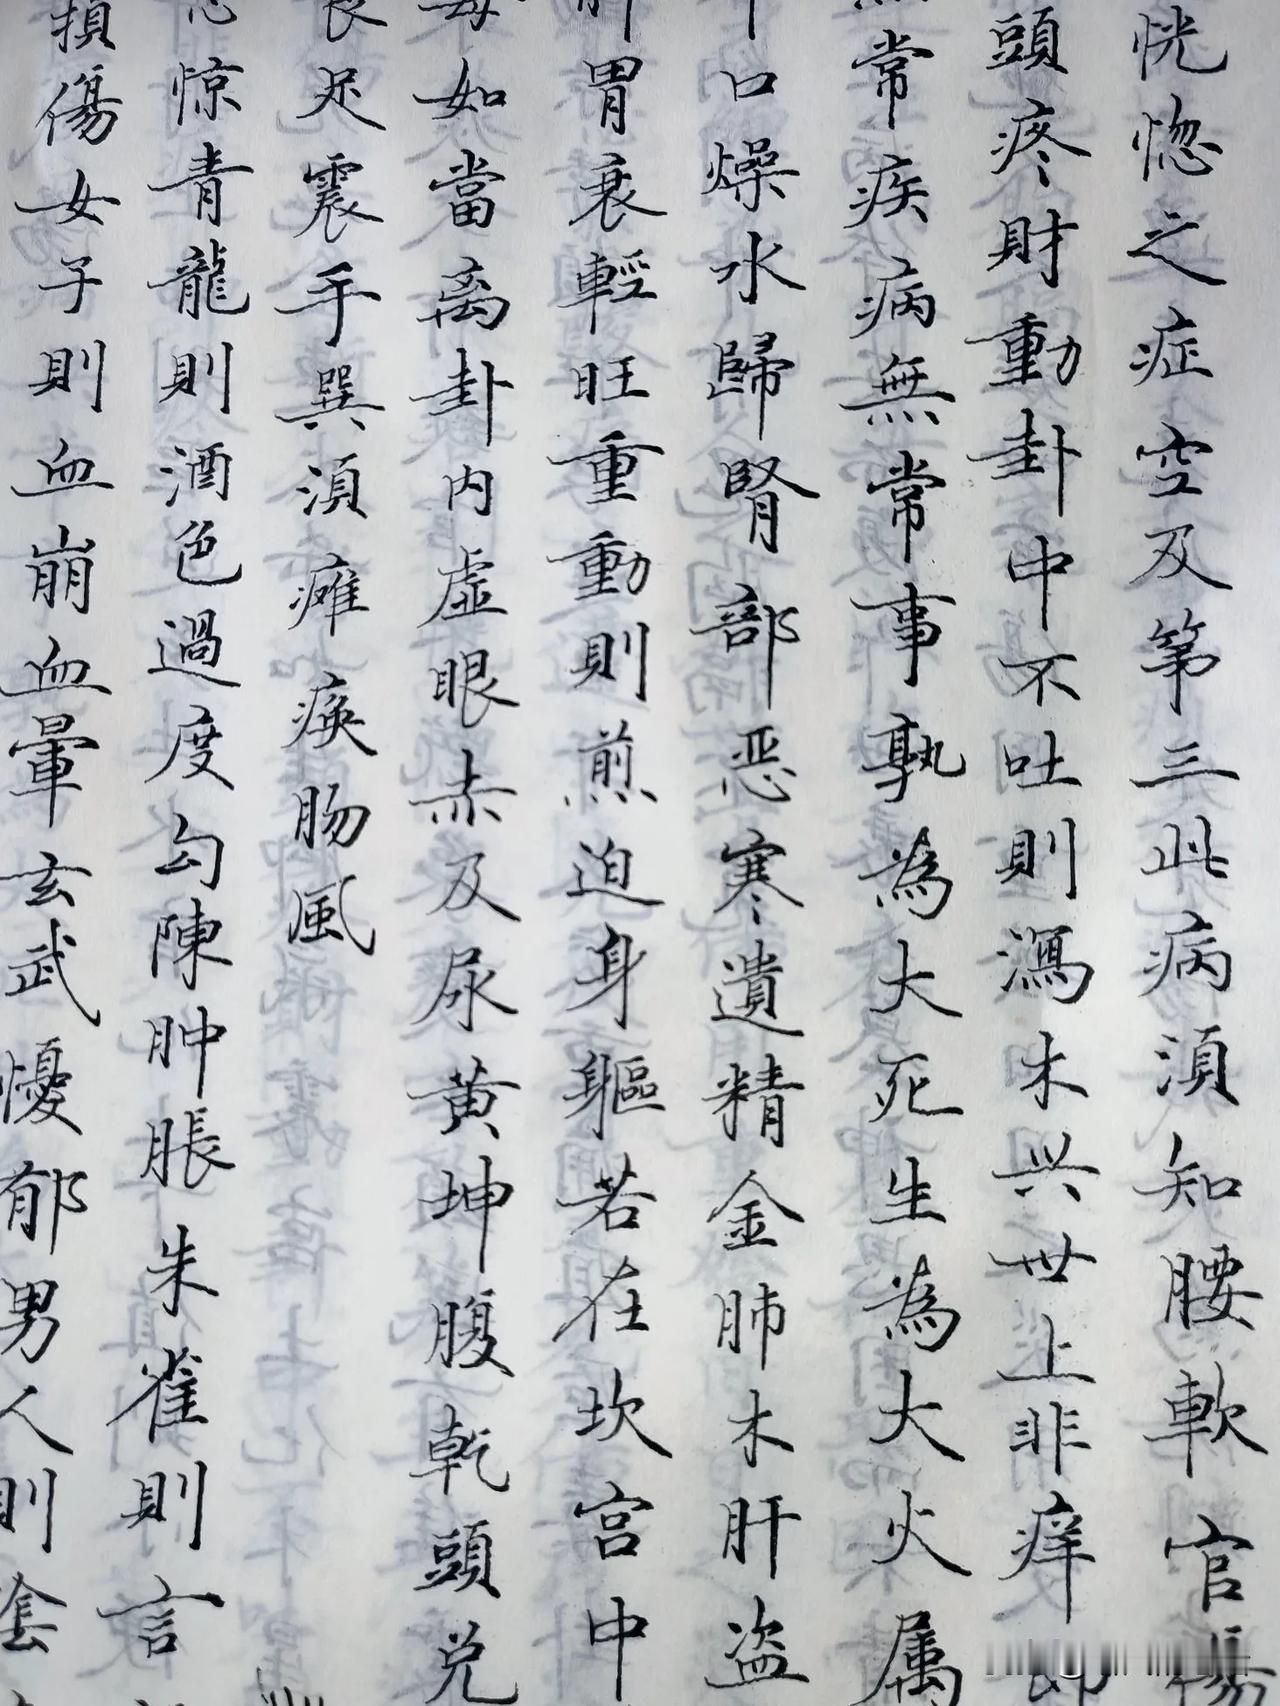 恍惚之症空及第三此病湏知腰軟官傷
頭疼財動卦中不吐則瀉木兴世上非痒即
常疾病無常事孰為大死生為大火属
口燥水歸腎部恶寒遺精金肺木肝盗
胃衰輕旺重動則煎迫身軀若在坎宫中
如當离卦内虚眼赤及尿黄坤腹乾頭兑
足震手巽湏瘫痪肠風
惊青龍則酒色過度勾陳肿脹朱雀則言
損傷女子則血崩血暈玄武憂郁男人則